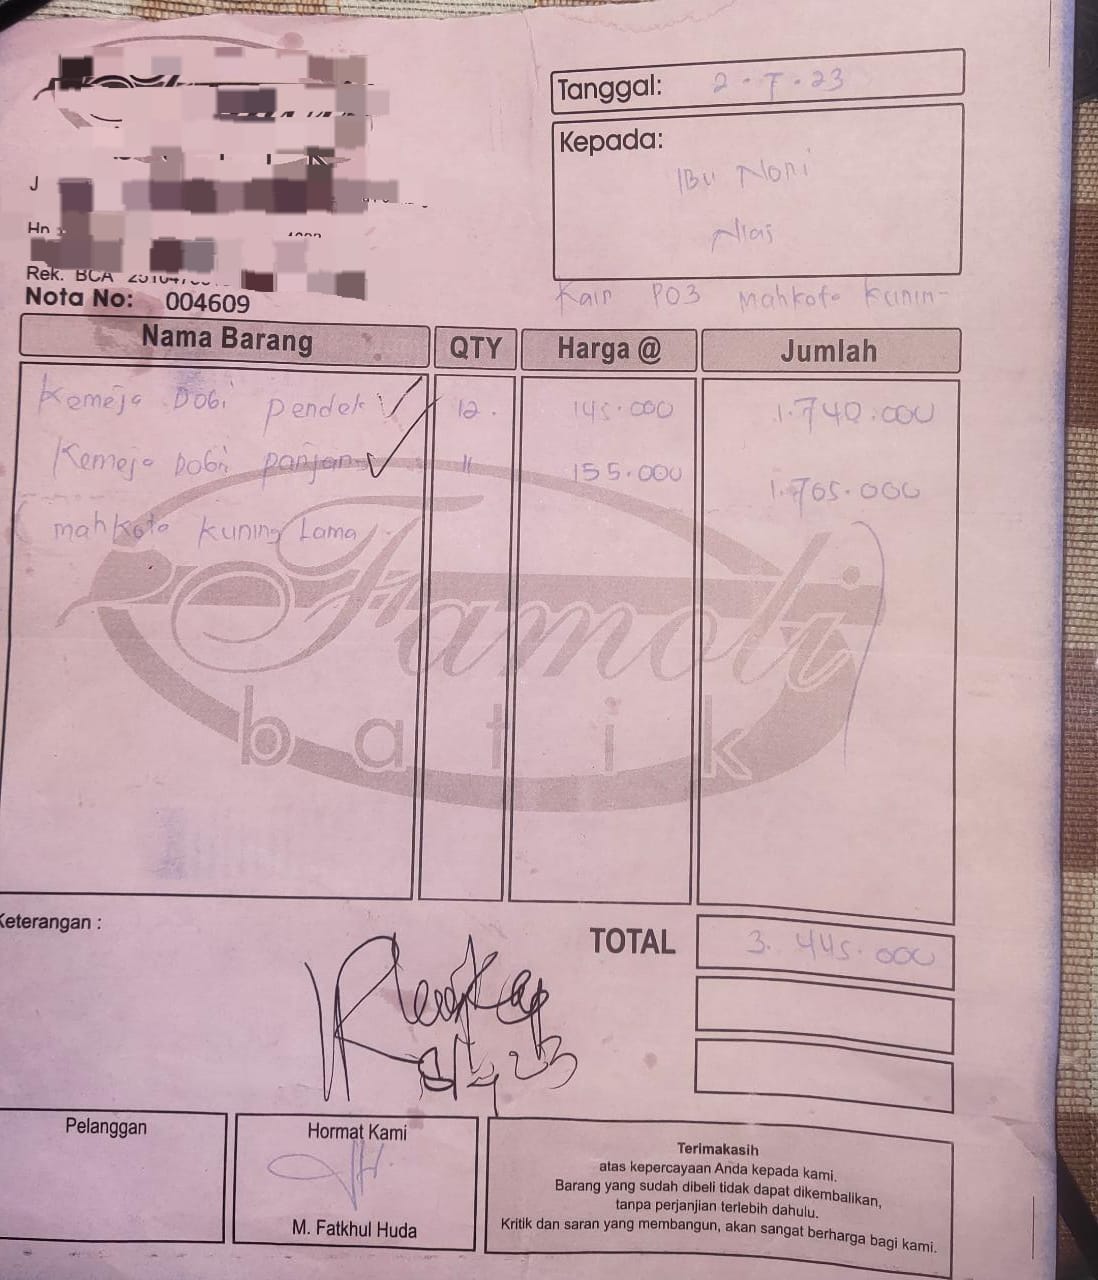 Tanggal: 2-7-23
Kepada:
IBU Noni
Nias
Rek. BCA
Nota No: 004609
Kain PO3 Mahkota Kunin-
Nama Barang QTY Harga @ Jumlah
Kemeja Dobi pendek 12. 145.000 1.740.000
Kemeja Dobi panjan 11 155.000 1.705.000
mahkota kuning Lama
Famoli
batik
Keterangan :
TOTAL 3.445.000
lengkap
Pelanggan
Hormat Kami
M. Fatkhul Huda
Terimakasih
atas kepercayaan Anda kepada kami.
Barang yang sudah dibeli tidak dapat dikembalikan,
tanpa perjanjian terlebih dahulu.
Kritik dan saran yang membangun, akan sangat berharga bagi kami.